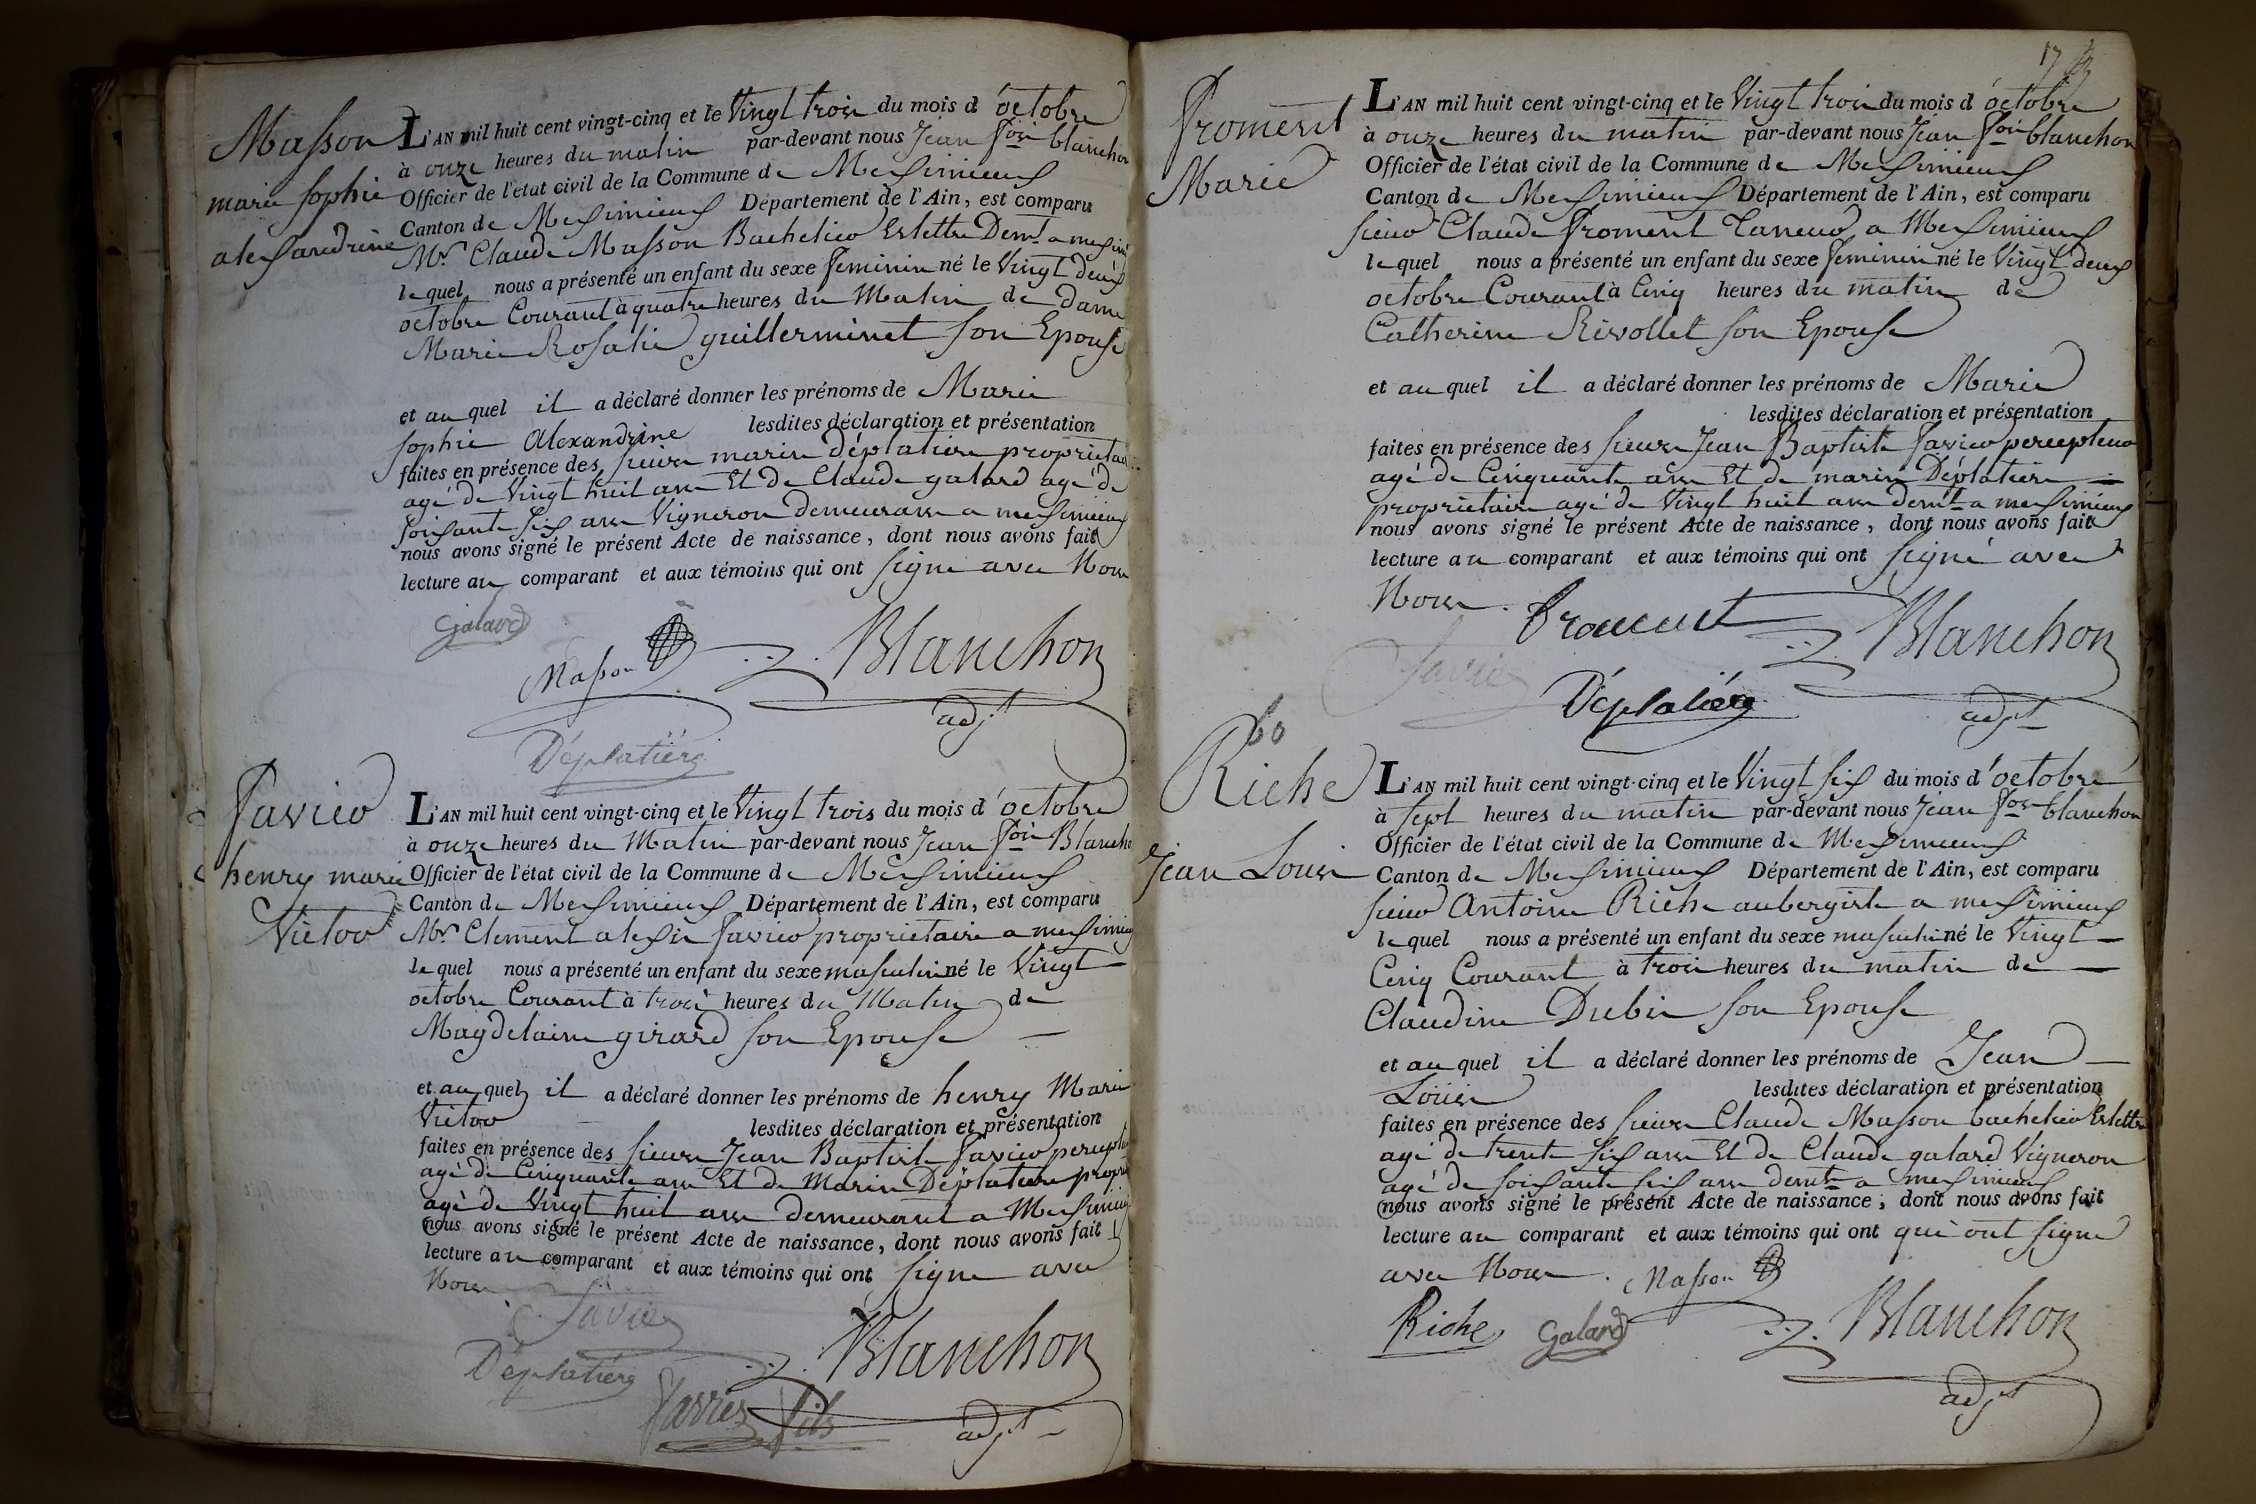 Masson
marie sophie
alexandrine
L'AN mil huit cent vingt-cinq et le Vingt trois du mois d'octobre
à onze heures du matin par-devant nous Jean fois blanchon
Officier de l'état civil de la Commune de Messimieux
Canton de Messimieux Département de l'Ain, est comparu
Mr Claude Masson Bachelier Eslettre Demt a
lequel nous a présenté un enfant du sexe feminin né le Vingt deux
octobre Courant à quatre heures du Matin de dame
Marie Rosalie guillerminet son Epouse
et au quel il a déclaré donner les prénoms de Marie
sophie Alexandrine lesdites déclaration et présentation
faites en présence des sieurs marin déplatiere
agé de Vingt huit ans Et de Claude galard agé de
soixante six ans Vigneron demeurans a messimieux
nous avons signé le présent Acte de naissance, dont nous avons fait
lecture au comparant et aux témoins qui ont signe avec Nous
Galard
Masson
Blanchon
adjt
Déplatiére
Favier
henry marie
Victor
L'AN mil huit cent vingt-cinq et le Vingt trois du mois d'octobre
à onze heures du Matin par-devant nous Jean fois
Officier de l'état civil de la Commune de Messimieux
Canton de Messimieux Département de l'Ain, est comparu
Mr Clement alexis favier proprietaire a
lequel nous a présenté un enfant du sexe masculin né le Vingt
octobre Courant à trois heures du Matin de
Magdelaine girard son Epouse
et au quel il a déclaré donner les prénoms de henry Marie
Victor lesdites déclaration et présentation
faites en présence des sieurs Jean Baptiste favier
agé de Cinquante ans Et de Marin Déplatiere
agé de Vingt huit ans demeurant a
nous avons signé le présent Acte de naissance, dont nous avons fait
lecture au comparant et aux témoins qui ont signe avec
Nous
Favier
Déplatiére
Blanchon
Favier fils
adjt
17
Froment
Marie
L'AN mil huit cent vingt-cinq et le Vingt trois du mois d'octobre
à onze heures du matin par-devant nous Jean fois blanchon
Officier de l'état civil de la Commune de Messimieux
Canton de Messimieux Département de l'Ain, est comparu
sieur Claude froment Taneur a Messimieux
lequel nous a présenté un enfant du sexe feminin né le Vingt deux
octobre Courant à Cinq heures du matin de
Catherine Rivollet son Epouse
et au quel il a déclaré donner les prénoms de Marie
lesdites déclaration et présentation
faites en présence des sieurs Jean Baptiste favier percepteur
agé de Cinquante ans Et de marin Déplatiere
proprietaire agé de Vingt huit ans demt a messimieux
nous avons signé le présent Acte de naissance, dont nous avons fait
lecture au comparant et aux témoins qui ont signé avec
Nous.
Froment
Blanchon
Favier
Déplatiére
adjt
60
Riche
Jean Louis
L'AN mil huit cent vingt-cinq et le Vingt six du mois d'octobre
à sept heures du matin par-devant nous Jean fois blanchon
Officier de l'état civil de la Commune de Messimieux
Canton de Messimieux Département de l'Ain, est comparu
sieur Antoine Riche aubergiste a messimieux
lequel nous a présenté un enfant du sexe masculin né le Vingt
Cinq Courant à trois heures du matin de
Claudine Dubis son Epouse
et au quel il a déclaré donner les prénoms de Jean
Louis lesdites déclaration et présentation
faites en présence des sieurs Claude Masson bachelier Eslettre
agé de trente six ans Et de Claude galard Vigneron
agé de soixante six ans demt a messimieux
nous avons signé le présent Acte de naissance, dont nous avons fait
lecture au comparant et aux témoins qui ont qui ont signe
avec Nous.
Masson
Riche
Galard
Blanchon
adjt